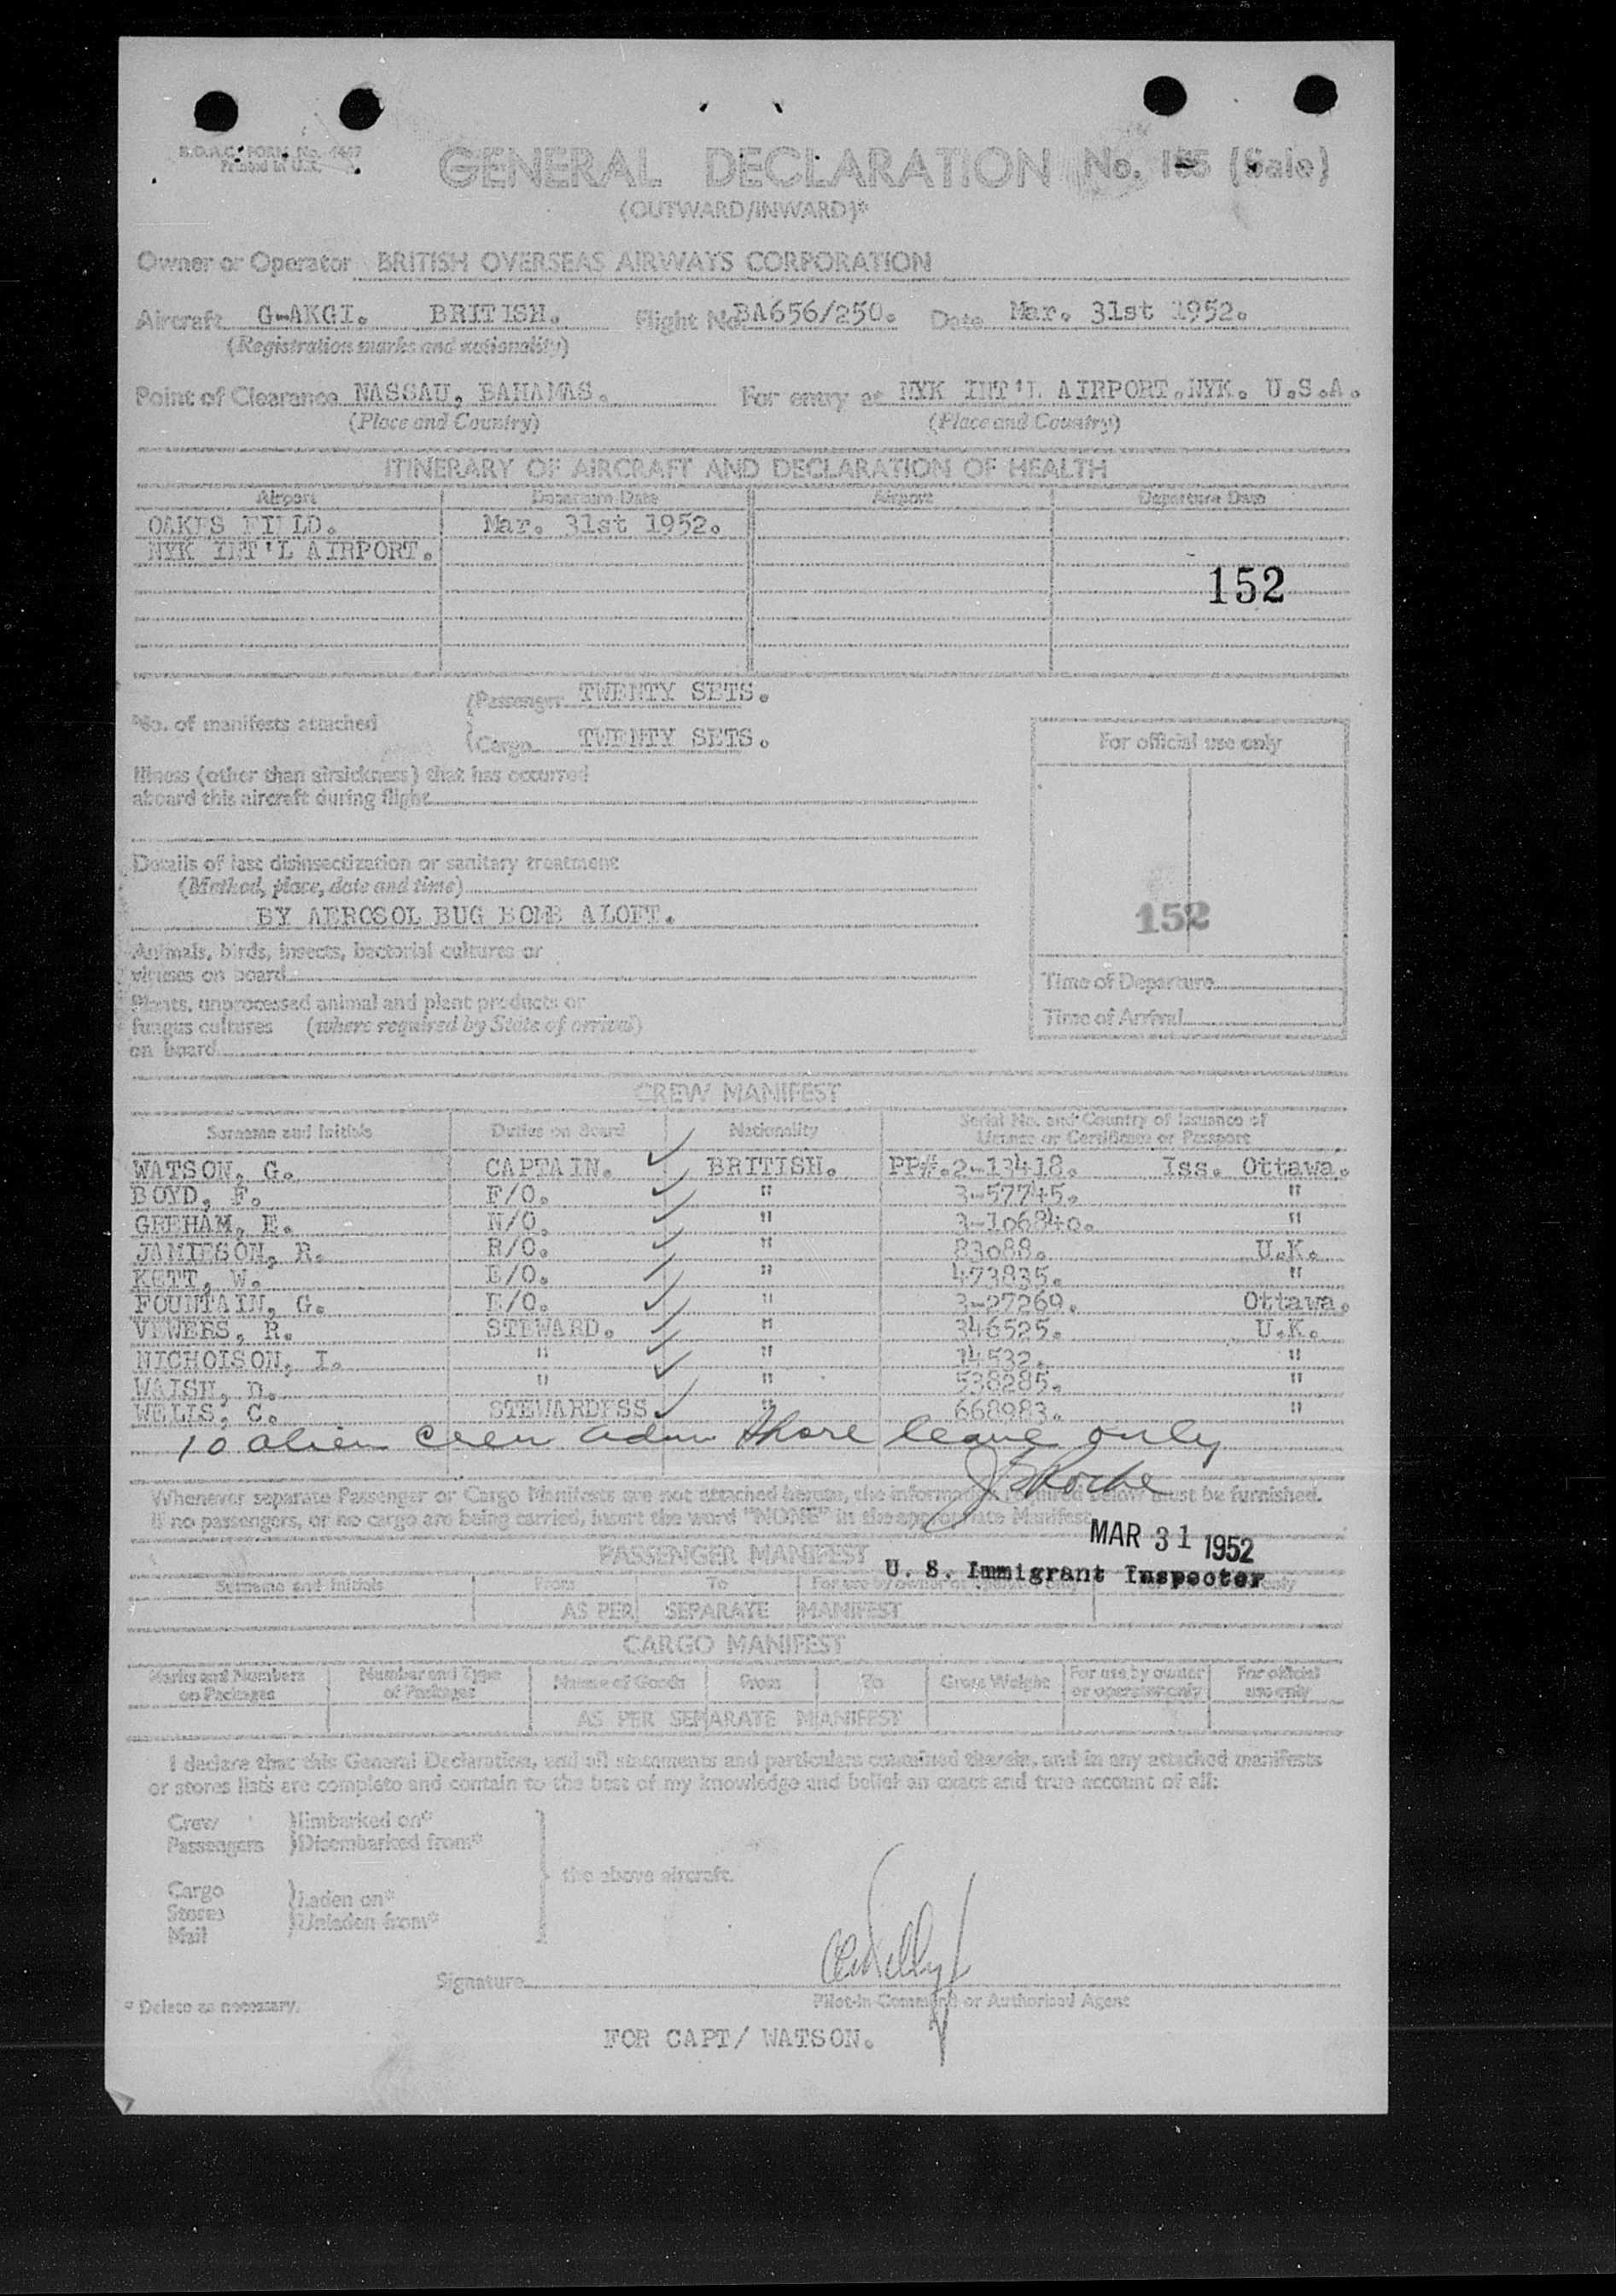 B.O.A.C. FORM No.
Printed in U.K.
GENERAL DECLARATION No. (Sale)
(OUTWARD/INWARD)*
Owner or Operator BRITISH OVERSEAS AIRWAYS CORPORATION
Aircraft G-AKGI. BRITISH. Flight No. BA656/250. Date Mar. 31st 1952.
(Registration marks and nationality)
Point of Clearance NASSAU, BAHAMAS. For entry at NYK INT'L AIRPORT.NYK. U.S.A.
(Place and Country) (Place and Country)
ITINERARY OF AIRCRAFT AND DECLARATION OF HEALTH
Airport Departure Date Airport Departure Date
OAKES FIELD. Mar. 31st 1952.
NYK INT'L AIRPORT.
152
No. of manifests attached
(Passenger TWENTY SETS.
(Cargo TWENTY SETS.
For official use only
Illness (other than airsickness) that has occurred
aboard this aircraft during flight
Details of last disinsectization or sanitary treatment
(Method, place, date and time)
BY AEROSOL BUG BOMB ALOFT.
152
Animals, birds, insects, bacterial cultures or
viruses on board
Time of Departure
Plants, unprocessed animal and plant products or
fungus cultures (where required by State of arrival)
on board
Time of Arrival
CREW MANIFEST
Surname and Initials Duties on Board Nationality Serial No. and Country of Issuance of
License or Certificate or Passport
WATSON, G. CAPTAIN. ✓ BRITISH. PP#.2-13418. Iss. Ottawa.
BOYD, F. F/O. ✓ " 3-57745. "
GREHAM, E. N/O. ✓ " 3-106840. "
JAMIESON, R. R/O. ✓ " 83088. U.K.
KETT, W. E/O. ✓ " 473835. "
FOUNTAIN, G. E/O. ✓ " 3-27269. Ottawa.
VEWERS, R. STEWARD. ✓ " 346525. U.K.
NICHOLSON, I. " ✓ " 14532. "
WALSH, D. " ✓ " 538285. "
WELLS, C. STEWARDESS ✓ " 668983. "
10 alien crew adm shore leave only
Whenever separate Passenger or Cargo Manifests are not attached hereto, the information required below must be furnished.
If no passengers, or no cargo are being carried, insert the word "NONE" in the appropriate Manifest.
MAR 31 1952
U. S. Immigrant Inspector
PASSENGER MANIFEST
Surname and Initials From To For use by owner or operator only
AS PER SEPARATE MANIFEST
CARGO MANIFEST
Marks and Numbers on Packages Number and Type of Packages Nature of Goods From To Gross Weight For use by owner or operator only For official use only
AS PER SEPARATE MANIFEST
I declare that this General Declaration, and all statements and particulars contained therein, and in any attached manifests
or stores lists are complete and contain to the best of my knowledge and belief an exact and true account of all:
Crew )Embarked on*
Passengers )Disembarked from*
the above aircraft.
Cargo )Laden on*
Stores )Unladen from*
Mail
Signature
* Delete as necessary. Pilot-in-Command or Authorised Agent
FOR CAPT/ WATSON.